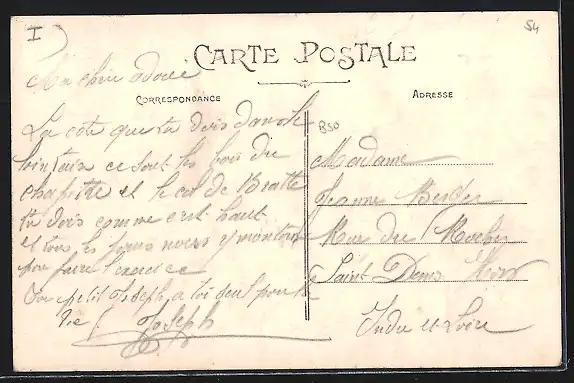 I
54
CARTE POSTALE
Ma chère adorée
CORRESPONDANCE
ADRESSE
B50
La côte que tu vois dans le
lointain ce sont les bois du
chapitre et le col de
tu vois comme c'est haut
et tous les jours nous y montons
pour faire l'exercice
Ton petit Joseph a toi seul pour la
vie ! Joseph
Madame
Jeanne
Rue du Rocher
Saint Denis Hors
Indre et Loire